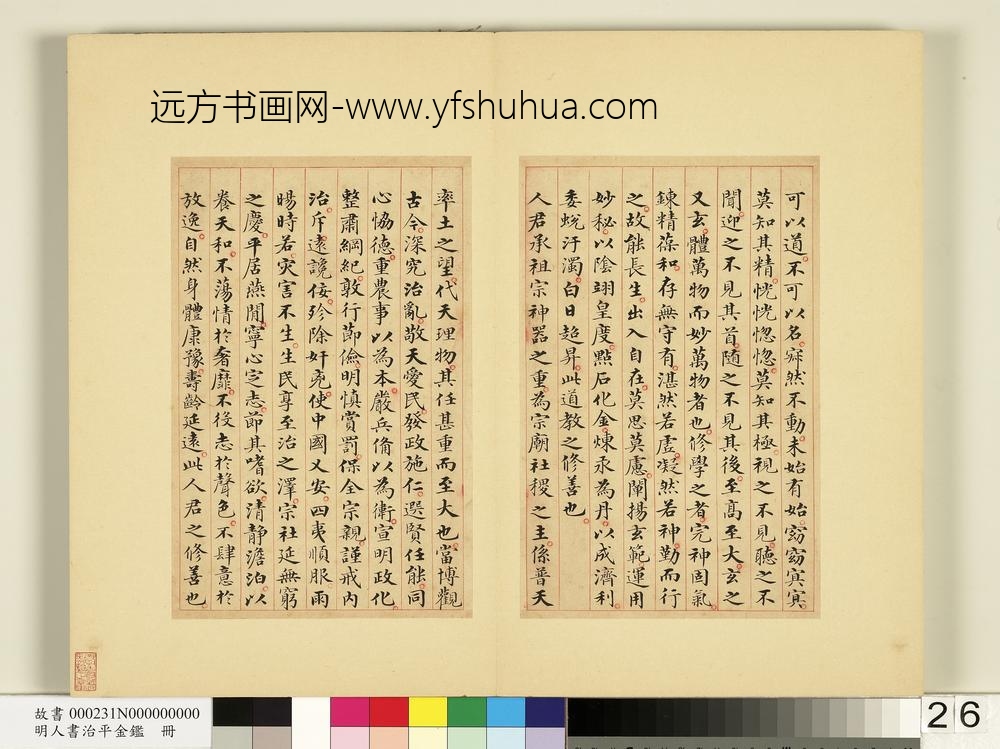 远方书画网-www.yfshuhua.com
可以道不可以名寂然不動未始有始窈窈冥冥
莫知其精恍恍惚惚莫知其極視之不見聽之不
聞迎之不見其首隨之不見其後至高至大玄之
又玄體萬物而妙萬物者也修學之者完神固氣
鍊精葆和存無守有湛然若虛凝然若神勤而行
之故能長生出入自在莫思莫慮闡揚玄範運用
妙秘以陰翊皇度點石化金煉汞為丹以成濟利
委蛻汙濁白日超昇此道教之修善也
人君承祖宗神器之重為宗廟社稷之主係普天
率土之望代天理物其任甚重而至大也當博觀
古今深究治亂敬天愛民發政施仁選賢任能同
心恊德重農事以為本嚴兵俻以為衛宣明政化
整肅綱紀敦行節儉明慎賞罰保全宗親謹戒內
治斥遠讒佞殄除奸兇使中國乂安四夷順服雨
暘時若灾害不生生民享至治之澤宗社延無窮
之慶平居燕閒寧心定志節其嗜欲清静澹泊以
養天和不蕩情於奢靡不役志於聲色不肆意於
放逸自然身體康豫壽齡延遠此人君之修善也
故書 000231N000000000
明人書治平金鑑 冊
26